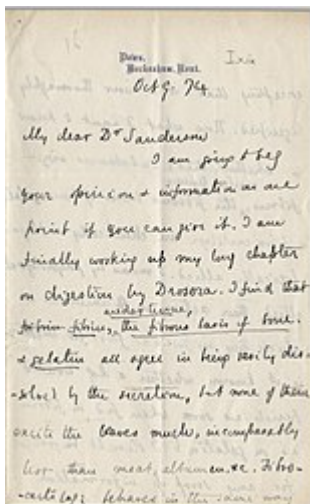 Down,
Beckenham, Kent.
Oct 9. 74
My dear Dr Sanderson
I am going to beg
your opinion & information on one
point if you can give it. I am
finally working up my long chapter
on digestion by Drosera. I find that
fibrin, the fibrous basis of bone.
& gelatin all agree in being easily dis-
-solved by the secretion, but none of them
excite the leaves much, incomparably
less than meat, albumen &c. Fibro-
-cartilage behaves in the same way